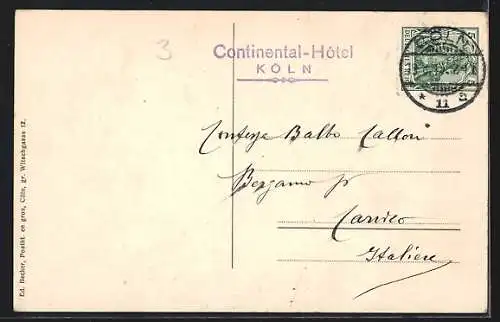 3
Continental-Hôtel
KÖLN
CÖLN
11
Contessa Balbo
Bergamo pr
Italien
Ed. Becker, Postkt. en gros, Cöln, gr. Witschgasse 12.